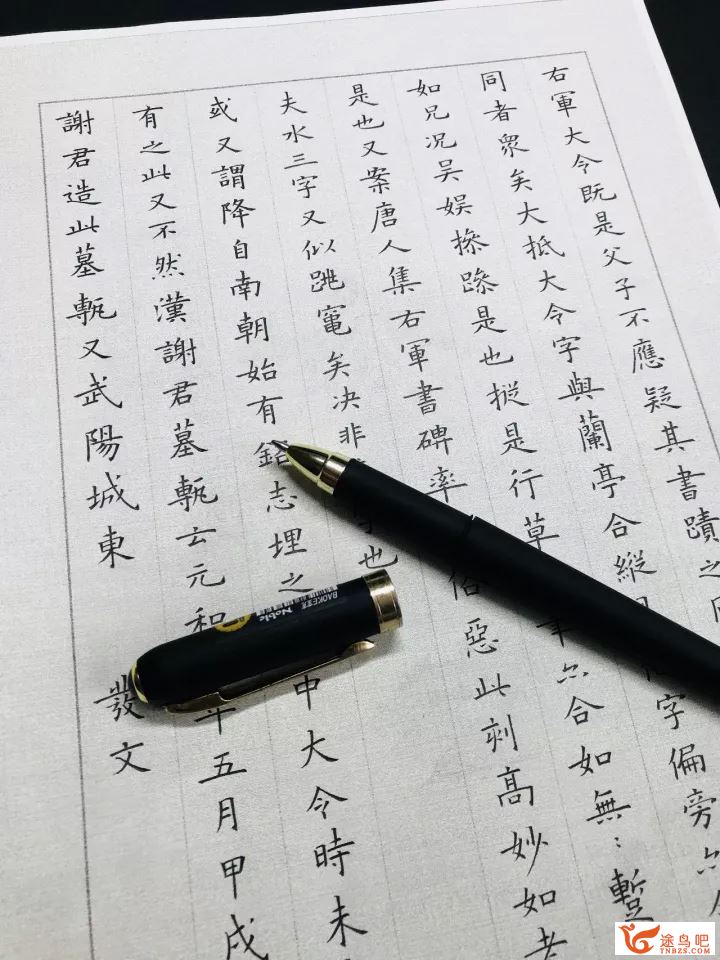 右軍大令既是父子不應疑其書蹟之
同者衆矣大抵大令字與蘭亭合縱 字偏旁亦
如兄况吴娱摻 是也摐是行草 亦合如無：蹔
是也又案唐人集右軍書碑率 俗惡此刻髙妙如
夫水三字又似跳竃矣决非 也
或又謂降自南朝始有銘志埋之 中大令時未
有之此又不然漢謝君墓甎云元和 年五月甲戌
謝君造此墓甎又武陽城東 發文
BAOKE宝克
Noble
途鸟吧
TNBZS.COM